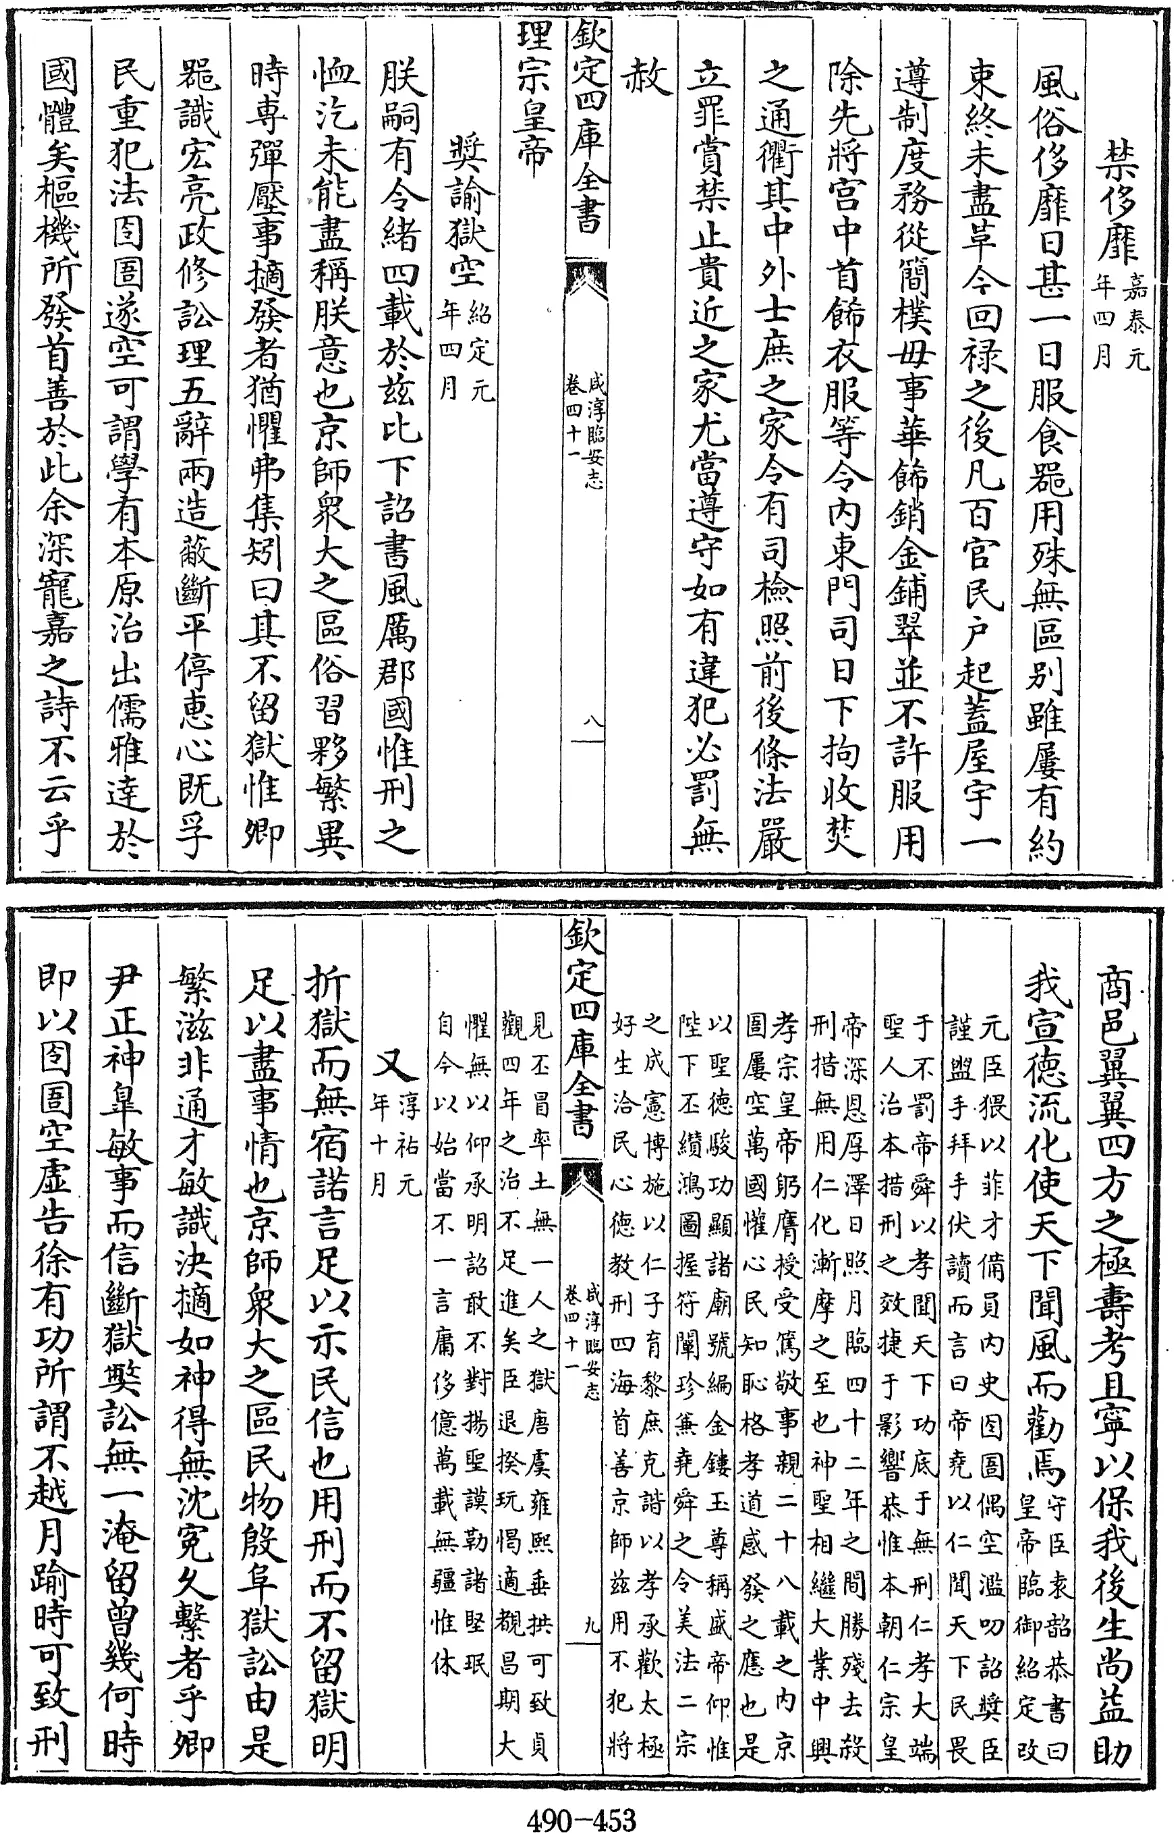 禁侈靡嘉泰元年四月
風俗侈靡日甚一日服食器用殊無區别雖屢有約
束終未盡革今回禄之後凡百官民户起蓋屋宇一
遵制度務從簡樸毋事華飾銷金鋪翠並不許服用
除先將宫中首飾衣服等令内東門司日下拘收焚
之通衢其中外士庶之家令有司檢照前後條法嚴
立罪賞禁止貴近之家尤當遵守如有違犯必罰無
赦
欽定四庫全書
咸淳臨安志
卷四十一
八
理宗皇帝
奬諭獄空紹定元年四月
朕嗣有令緒四載於兹比下詔書風厲郡國惟刑之
恤汔未能盡稱朕意也京師衆大之區俗習夥繁異
時専彈壓事擿發者猶懼弗集矧曰其不留獄惟卿
器識宏亮政修訟理五辭兩造蔽斷平停惠心既孚
民重犯法囹圄遂空可謂學有本原治出儒雅達於
國體矣樞機所發首善於此余深寵嘉之詩不云乎
商邑翼翼四方之極壽考且寧以保我後生尚益助
我宣徳流化使天下聞風而勸焉守臣袁韶恭書曰皇帝臨御紹定改
元臣猥以菲才備員内史囹圄偶空濫叨詔奬臣謹盥手拜手伏讀而言曰帝堯以仁聞天下民畏
于不罰帝舜以孝聞天下功底于無刑仁孝大端聖人治本措刑之效捷于影響恭惟本朝仁宗皇
帝深恩厚澤日照月臨四十二年之間勝殘去殺刑措無用仁化漸摩之至也神聖相繼大業中興
孝宗皇帝躬膺授受篤敬事親二十八載之内京圄屢空萬國懽心民知恥格孝道感發之應也是
以聖徳駿功顯諸廟號編金鏤玉尊稱盛帝仰惟陛下丕纘鴻圖握符闡珍兼堯舜之令美法二宗
之成憲博施以仁子育黎庶克諧以孝承歡太極好生洽民心徳教刑四海首善京師兹用不犯將
欽定四庫全書
咸淳臨安志
卷四十一
九
見丕冒率土無一人之獄唐虞雍熙垂拱可致貞觀四年之治不足進矣臣退揆玩愒適覩昌期大
懼無以仰承明詔敢不對揚聖謨勒諸堅珉自今以始當不一言庸侈億萬載無疆惟休
又淳祐元年十月
折獄而無宿諾言足以示民信也用刑而不留獄明
足以盡事情也京師衆大之區民物殷阜獄訟由是
繁滋非通才敏識決擿如神得無沈寃乆繫者乎卿
尹正神臯敏事而信斷獄弊訟無一淹留曾幾何時
即以囹圄空虚告徐有功所謂不越月踰時可致刑
490-453